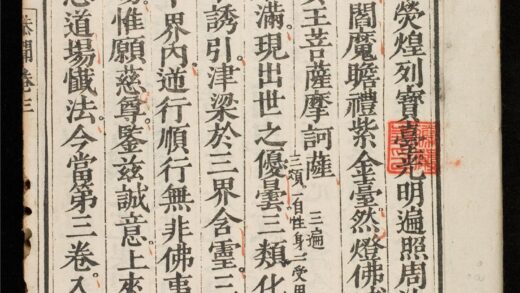 熒煌列寶臺光明遍照周
閻魔瞻禮紫金臺然燈佛
王菩薩摩訶薩 三遍
三頌自性身一受用
滿現出世之優曇三類化
誘引津梁於三界含靈三
界內逆行順行無非佛事
惟願慈尊鑒茲誠意上來
道場懺法今當第三卷入
卷三